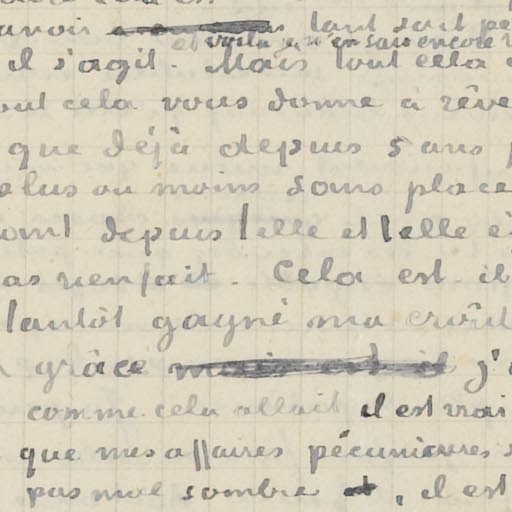 avoir tant soit pe
et voilà je n'en sais encore r
il s'agit. Mais tout cela
out cela vous donne à rêve
que déjà depuis 5 ans p
plus ou moins sans place
ont depuis telle et telle é
as rien fait. Cela est il
tantôt gagné ma croût
grâce mais est il j'
comme cela allait il est vrai
que mes affaires pécuniaires s
pas mal sombre et, il est